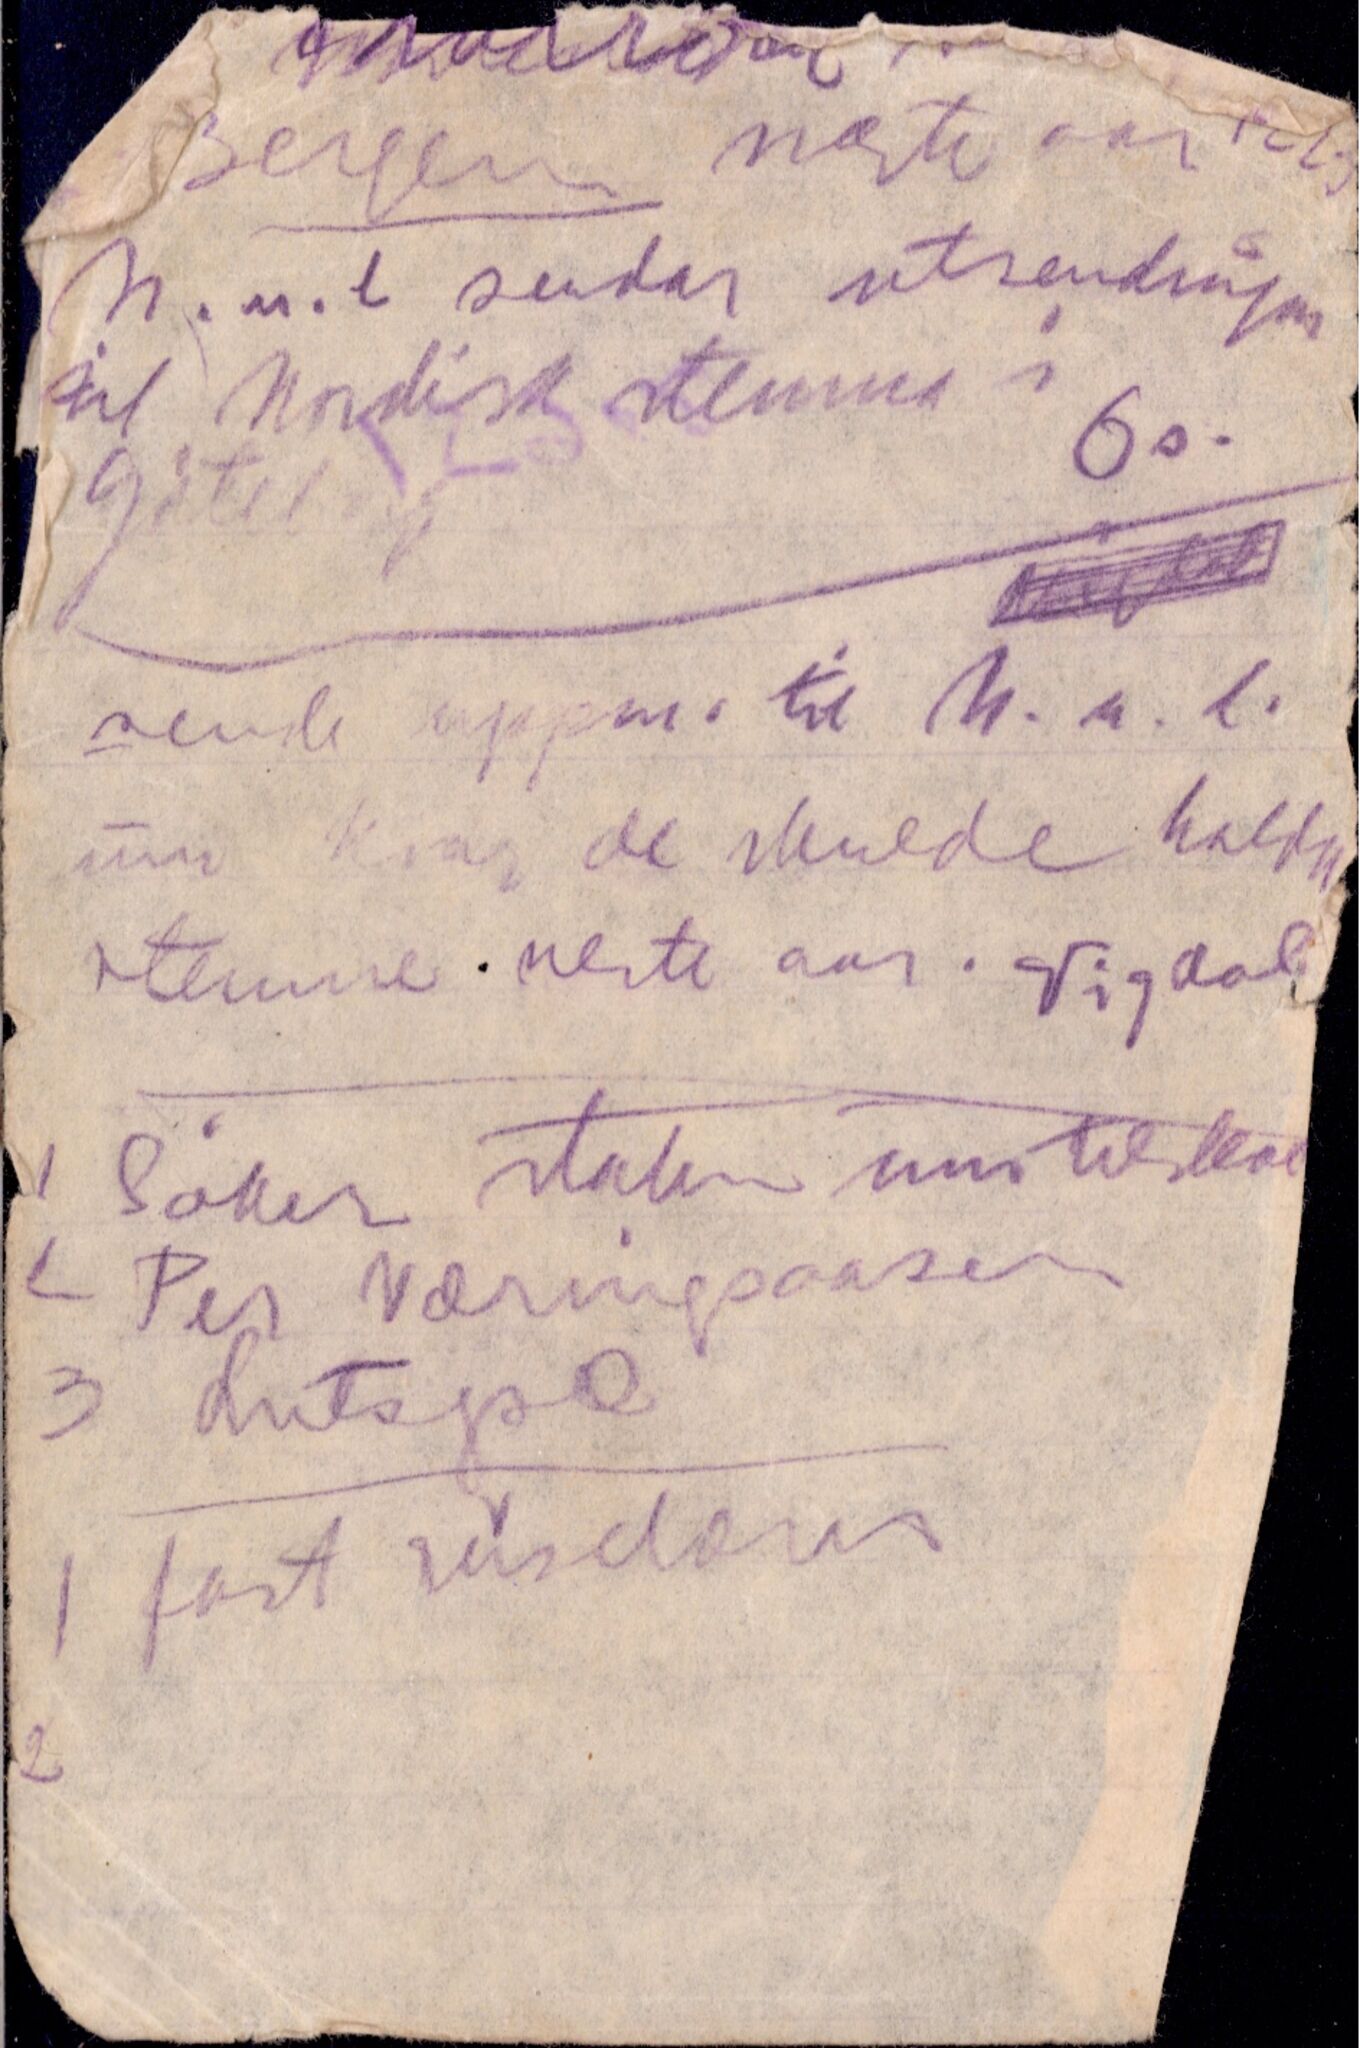 Bergen næste aar
N.u.l sendar utsendingar
til Nordisk stemna i
Göteborg 60.
sende uppm. til N.u.l.
um kvar de skulde halda
stemne neste aar. Vigdal
1 Söker staten um tilskot
2 Per Væringsaasen
3 Lutspel
1 fast
2